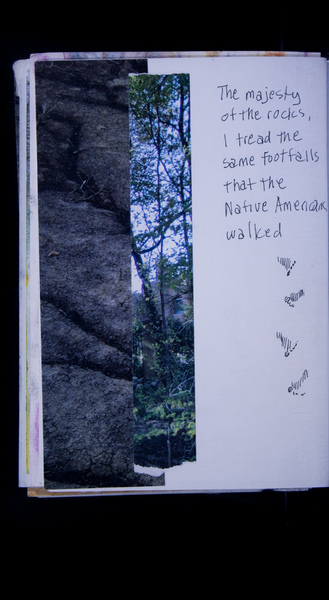 The majesty
of the rocks,
I tread the
same footfalls
that the
Native Americans
walked